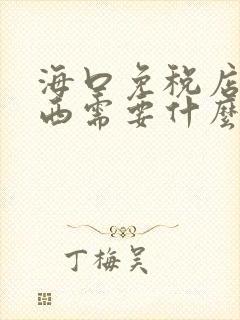 海口免税店
西需要什麼
丁梅吴